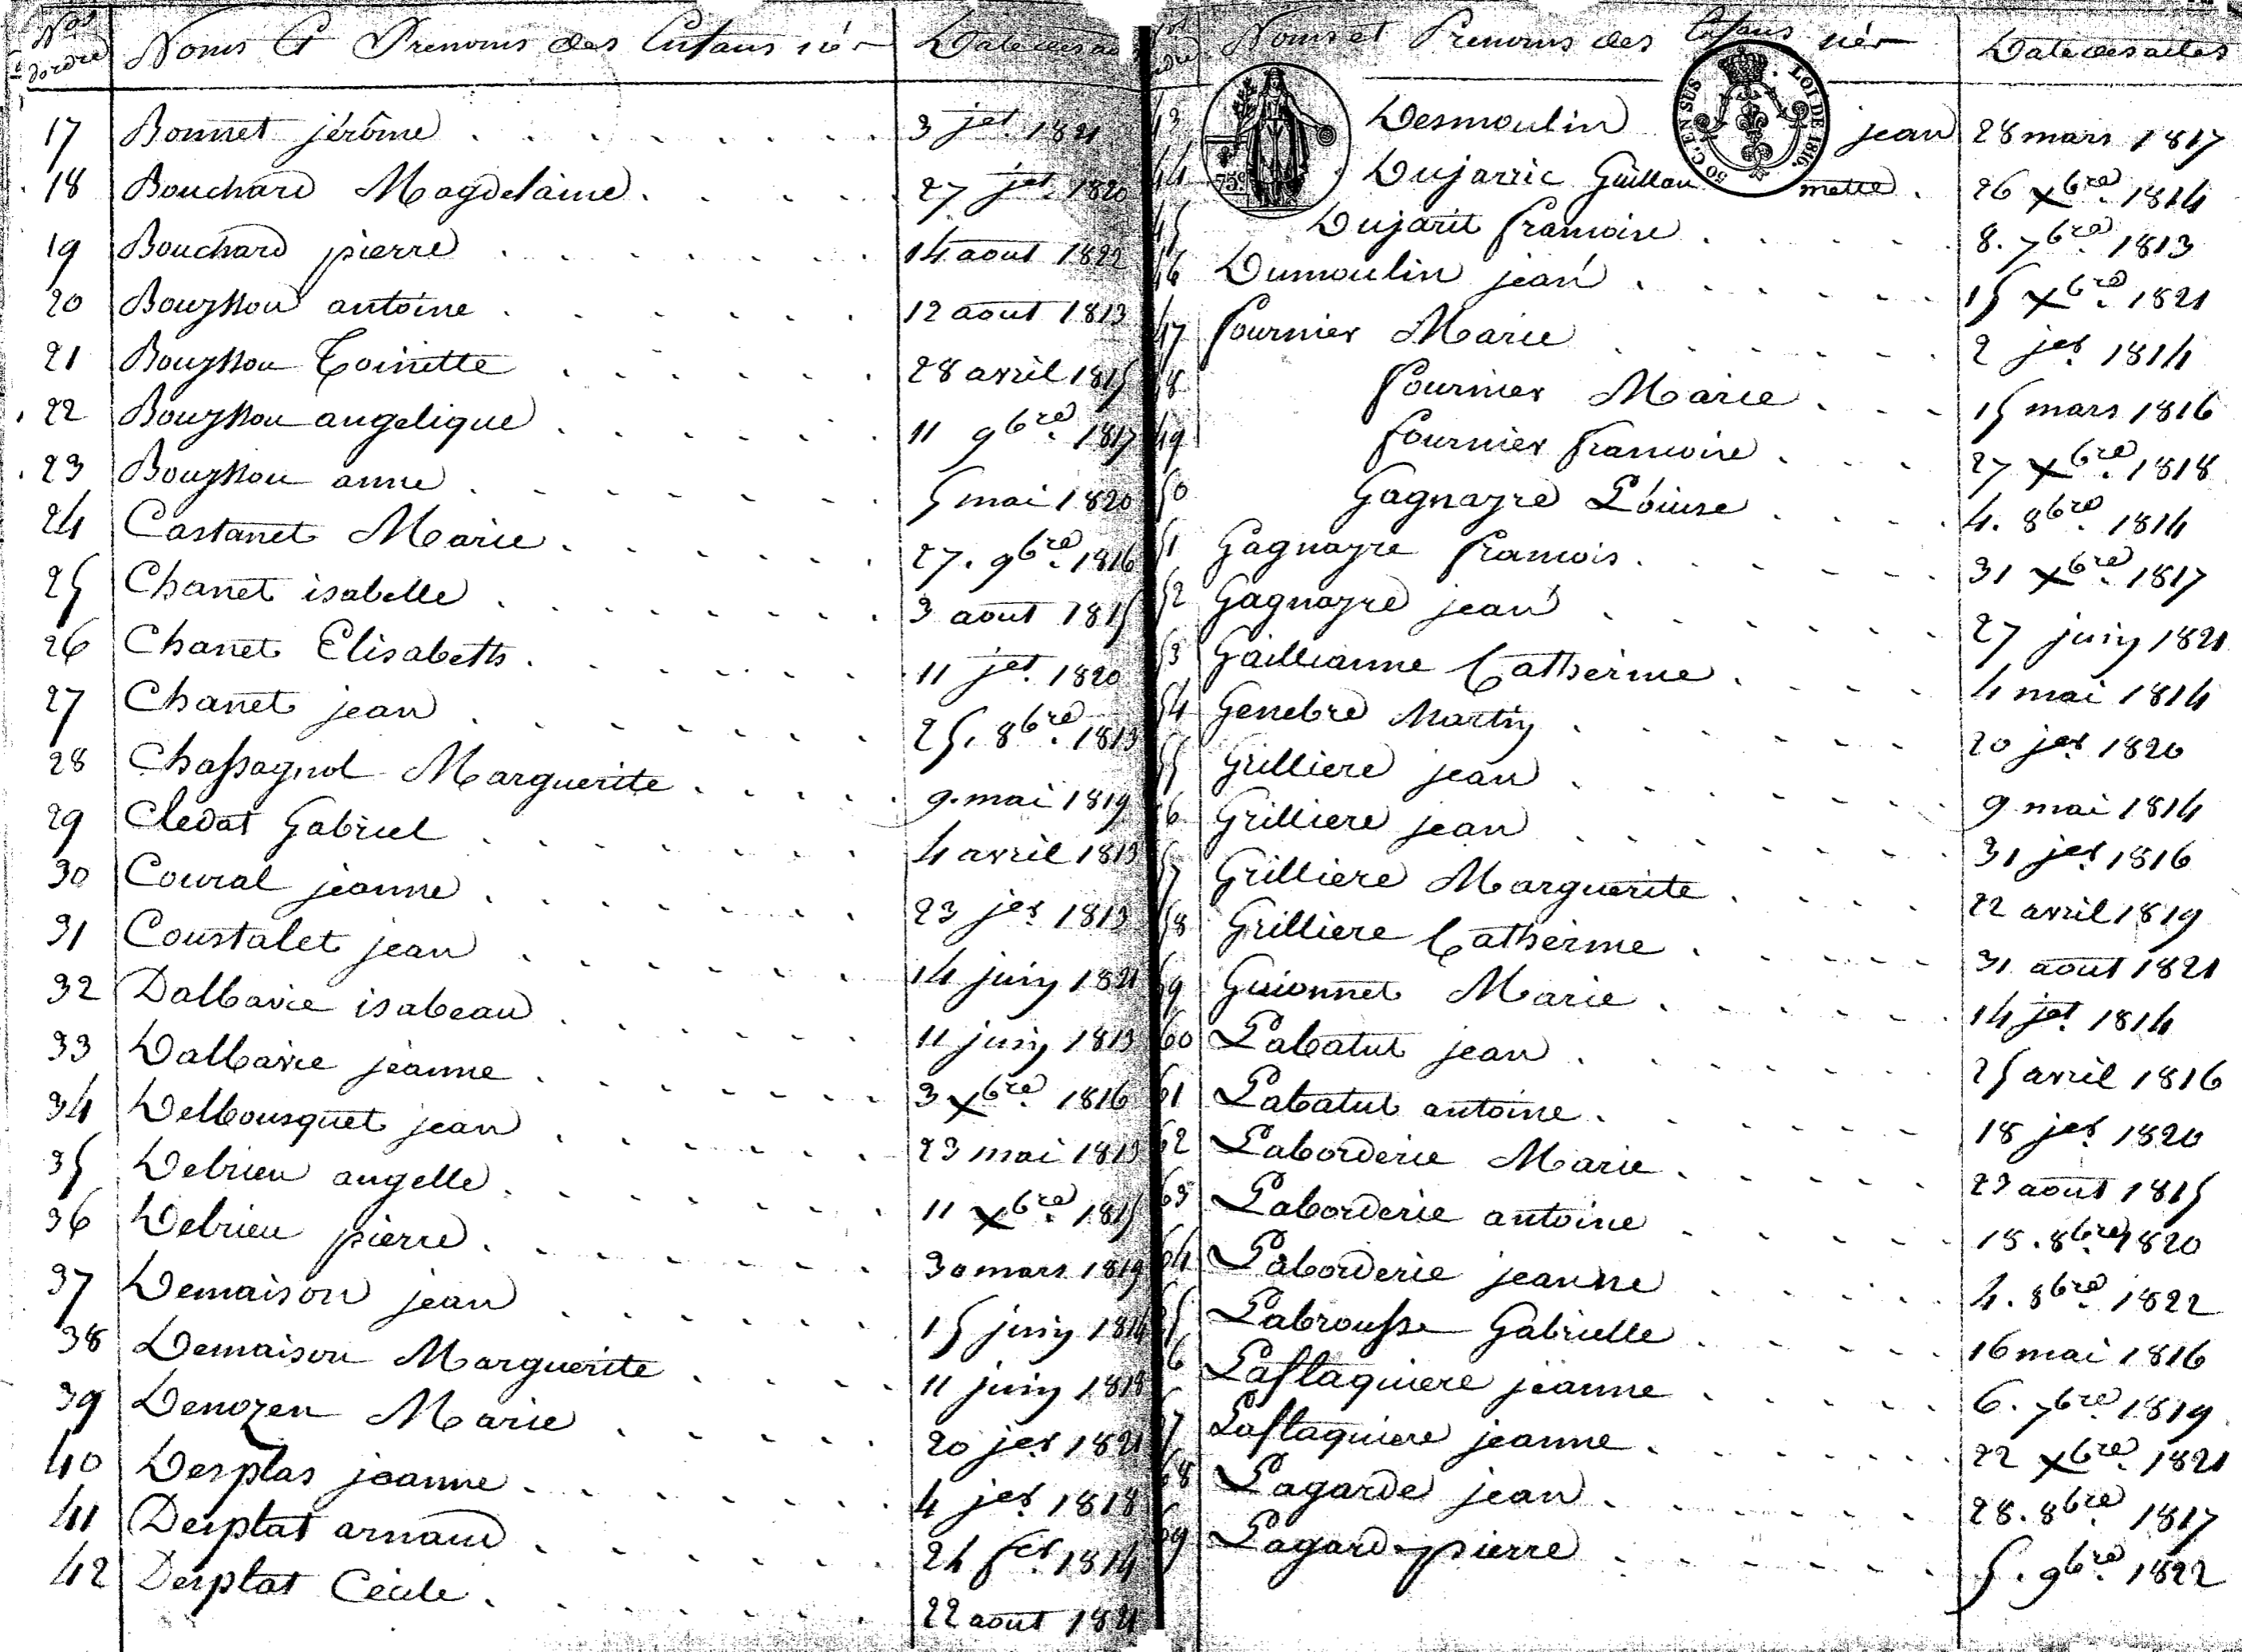 Nos d'ordre Noms Et Prenoms des Enfans nés Date des ac
17 Bonnet jérôme 3 jet. 1821
18 Bouchard Magdelaine 27 jet. 1820
19 Bouchard pierre 14 aout 1822
20 Bouyssou antoine 12 aout 1813
21 Bouyssou Toinette 28 avril 1815
22 Bouyssou angelique 11 9bre. 1817
23 Bouyssou anne 5 mai 1820
24 Castanet Marie 27. 9bre. 1816
25 Chanet isabelle 3 aout 1815
26 Chanet Elisabeth 11 jet. 1820
27 Chanet jean 25. 8bre. 1813
28 Chassagnol Marguerite 9. mai 1819
29 Cledat Gabriel 4 avril 1813
30 Coural jeanne 23 jer. 1813
31 Coustalet jean 14 juin 1821
32 Dalbavie isabeau 11 juin 1813
33 Dalbavie jeanne 3 Xbre. 1816
34 Delbousquet jean 23 mai 1813
35 Delrieu angelle 11 Xbre. 1815
36 Delrieu pierre 30 mars 1819
37 Demaison jean 15 juin 1814
38 Demaison Marguerite 11 juin 1818
39 Denozen Marie 20 jer. 1821
40 Desplas jeanne 4 jer. 1818
41 Desplat arnaud 24 fer. 1814
42 Desplat Cécile 22 aout 1821
Noms et Prenoms des Enfans nés Date des actes
75c.
50 C. EN SUS LOI DE 1816.
43 Desmoulin jean 28 mars 1817
44 Dujarric Guillaumette 26 Xbre. 1814
45 Dujarit francoise 8. 7bre. 1813
46 Dumoulin jean 15 Xbre. 1821
47 fournier Marie 2 jer. 1814
48 fournier Marie 15 mars 1816
49 fournier francoise 27 Xbre. 1818
50 Gagnayre Louise 4. 8bre. 1814
51 Gagnayre francois 31 Xbre. 1817
52 Gagnayre jean 27 juin 1821
53 Gaillianne Catherine 4 mai 1814
54 Genebre Martin 20 jer. 1820
55 Grilliere jean 9 mai 1814
56 Grilliere jean 31 jer. 1816
57 Grilliere Marguerite 22 avril 1819
58 Grilliere Catherine 31 aout 1821
59 Guionnet Marie 14 jet. 1814
60 Labatut jean 25 avril 1816
61 Labatut antoine 18 jer. 1820
62 Laborderie Marie 23 aout 1815
63 Laborderie antoine 18. 8bre. 1820
64 Laborderie jeanne 4. 8bre. 1822
65 Labrousse Gabrielle 16 mai 1816
66 Laflaquiere jeanne 6. 7bre. 1819
67 Laflaquiere jeanne 22 Xbre. 1821
68 Lagarde jean 28. 8bre. 1817
69 Lagarde pierre 5. 9bre. 1822